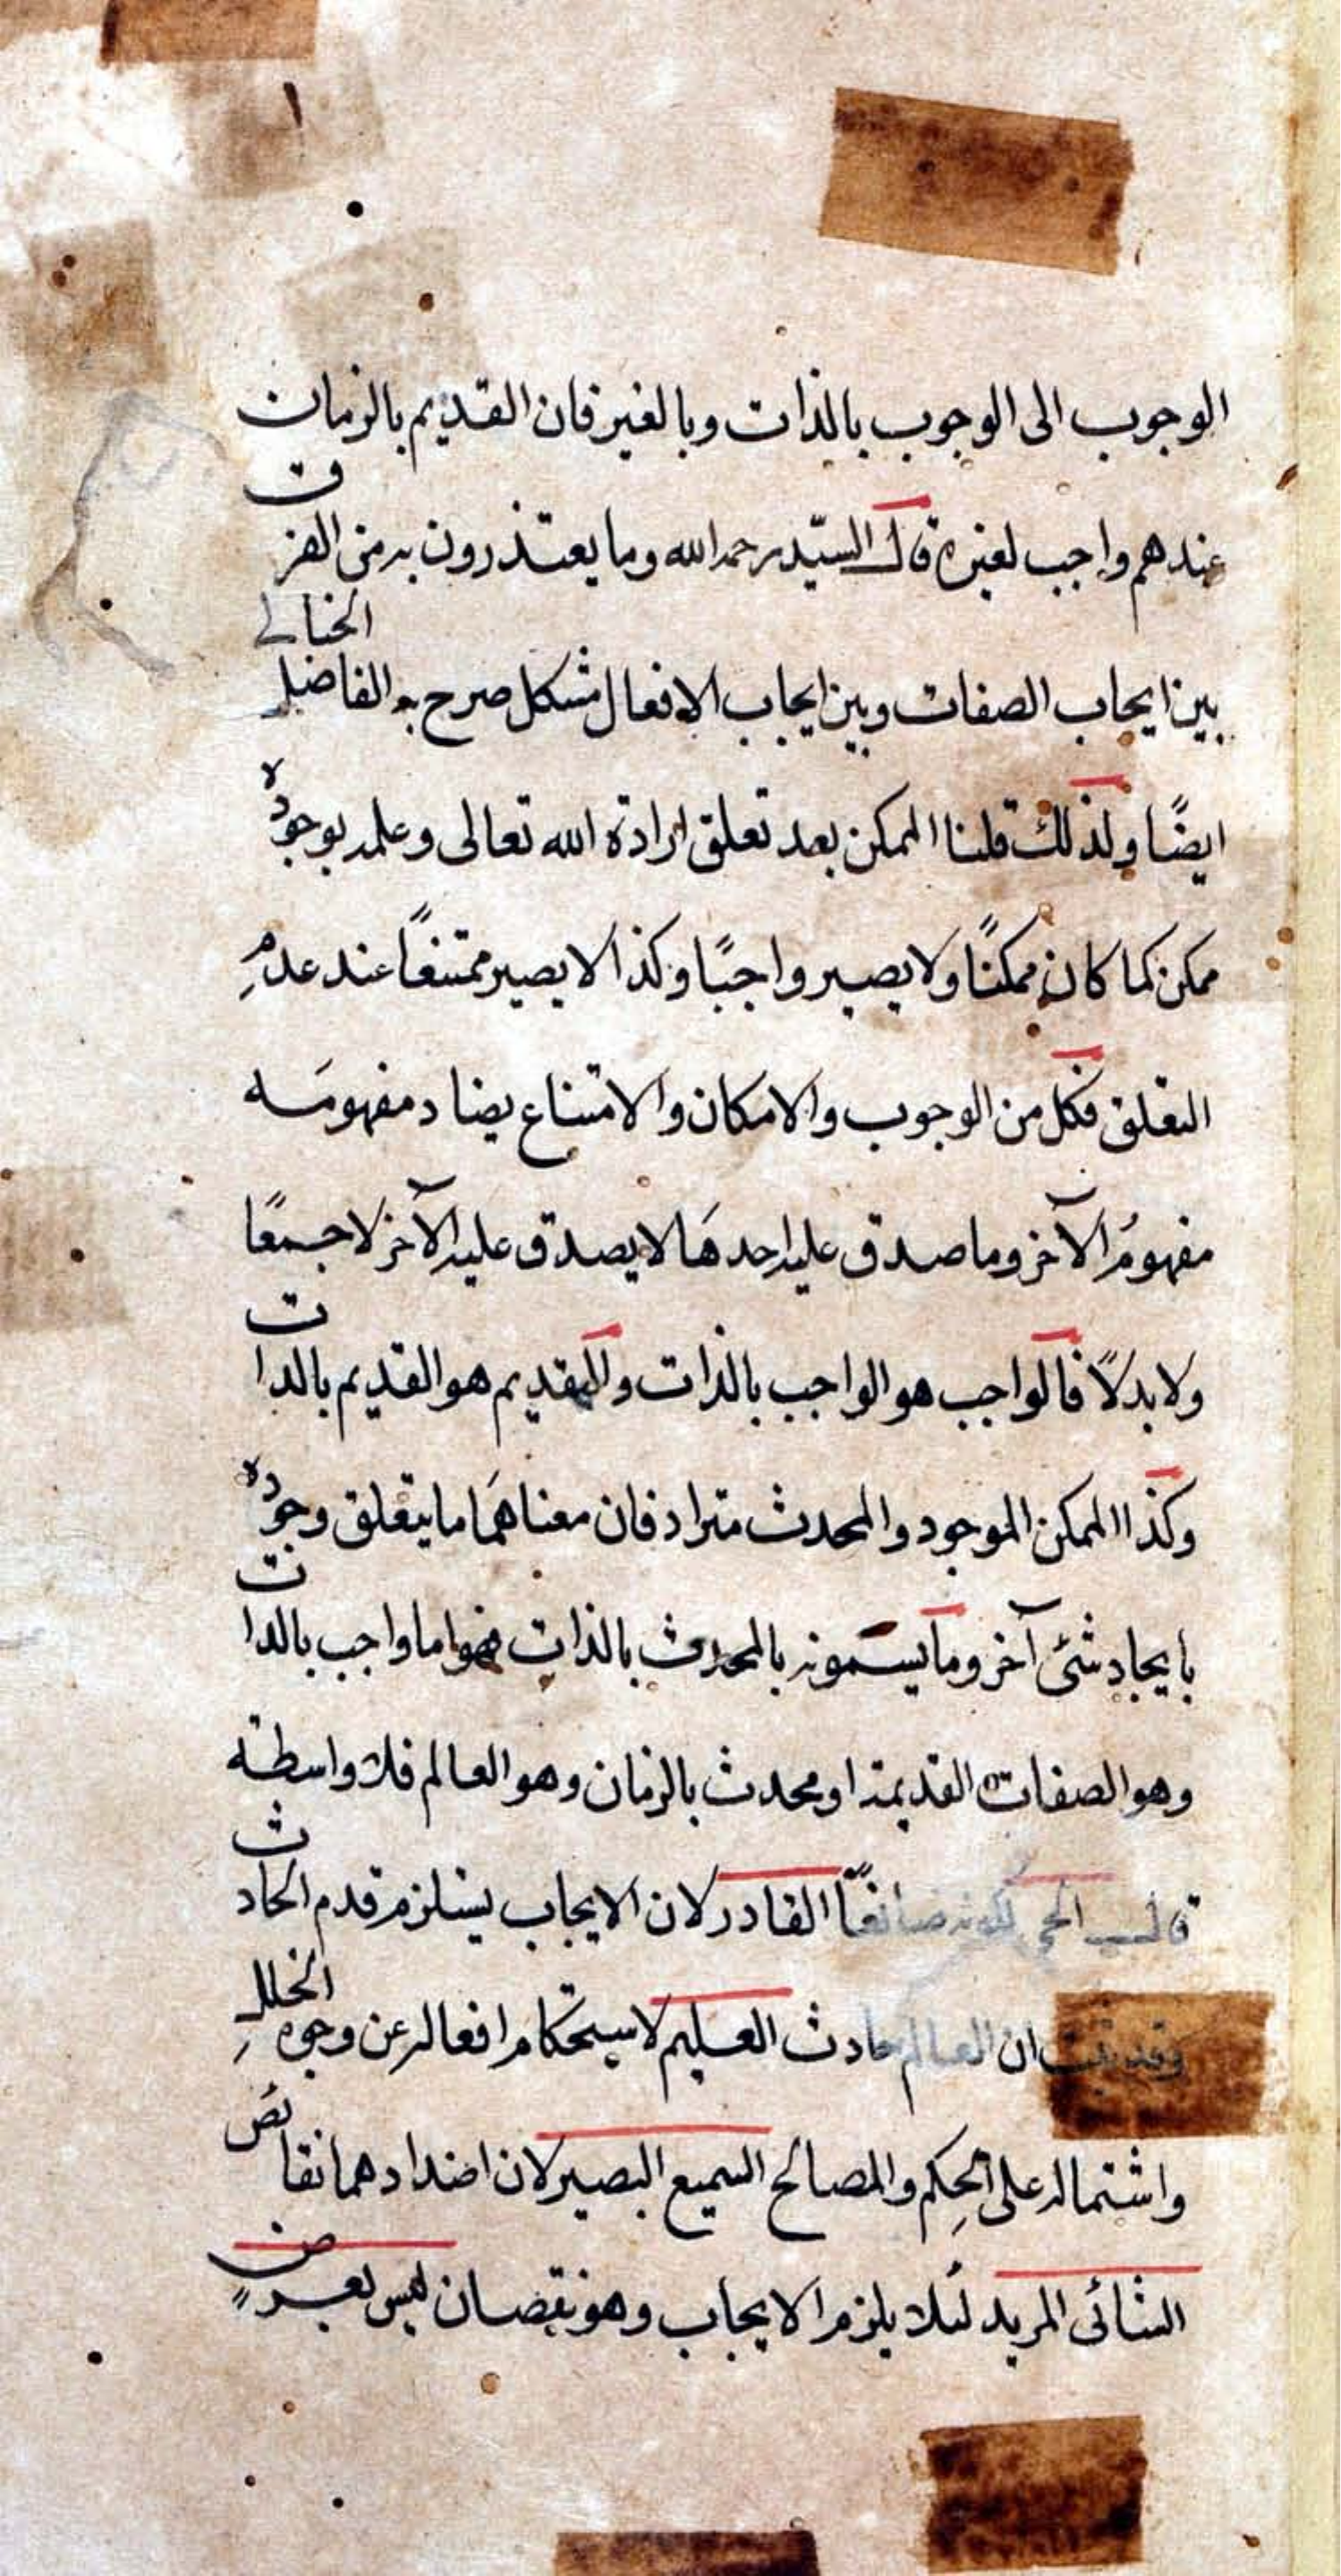 الوجوب الى الوجوب بالذات وبالغير فان القديم بالزمان
عندهم واجب لغيره قال السيّد رحمه الله وما يعتذرون به من الفرق
بين ايجاب الصفات وبين ايجاب الافعال مشكل صرح به الفاضل الخيالي
ايضًا ولذلك قلنا الممكن بعد تعلق ارادة الله تعالى وعلمه بوجوده
ممكن كما كان ممكنًا ولا يصير واجبًا وكذا لا يصير ممتنعًا عند عدمِ
التعلق فكل من الوجوب والامكان والامتناع يضاد مفهومَه
مفهومُ الآخر وما صدق عليه احدهَا لا يصدق عليه الآخر لا جمعًا
ولا بدلًا فالواجب هو الواجب بالذات والقديم هو القديم بالذات
وكذا الممكن الموجود والمحدث مترادفان معناهمَا ما يتعلق وجودُه
بايجاد شئ آخر وما يسمونه بالمحدث بالذات فهو اما واجب بالذات
وهو الصفات القديمة او محدث بالزمان وهو العالم فلا واسطة
قالب الحي لكونه صانعًا القادر لان الايجاب يستلزم قدم الحادث
وقد ثبت ان العالم حادث العليم لاستحكام افعاله عن وجوه الخللِ
واشتماله على الحِكم والمصالح السميع البصير لان اضدادهما نقائص
الشائى المريد لئلا يلزم الايجاب وهو نقصان ليس بعرضٍ